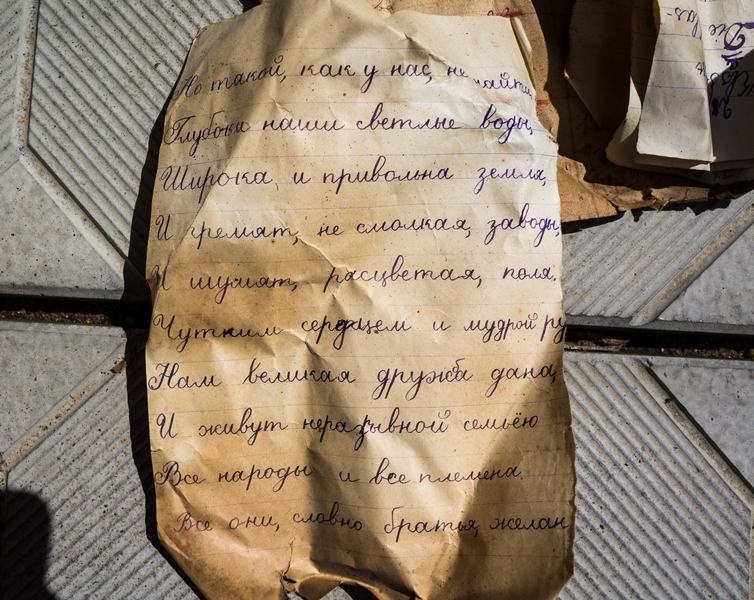 Но такой, как у нас, не
Глубоки наши светлые воды,
Широка и привольна земля,
И гремят, не смолкая, заводы,
И шумят, расцветая, поля.
Чутким сердцем и мудрой ру
Нам великая дружба дана,
И живут неразрывной семьёю
Все народы и все племена.
Все они, словно братья, желан
Die